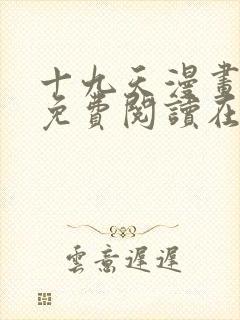 十九天漫畫
免費閱讀在
雲意遲遲